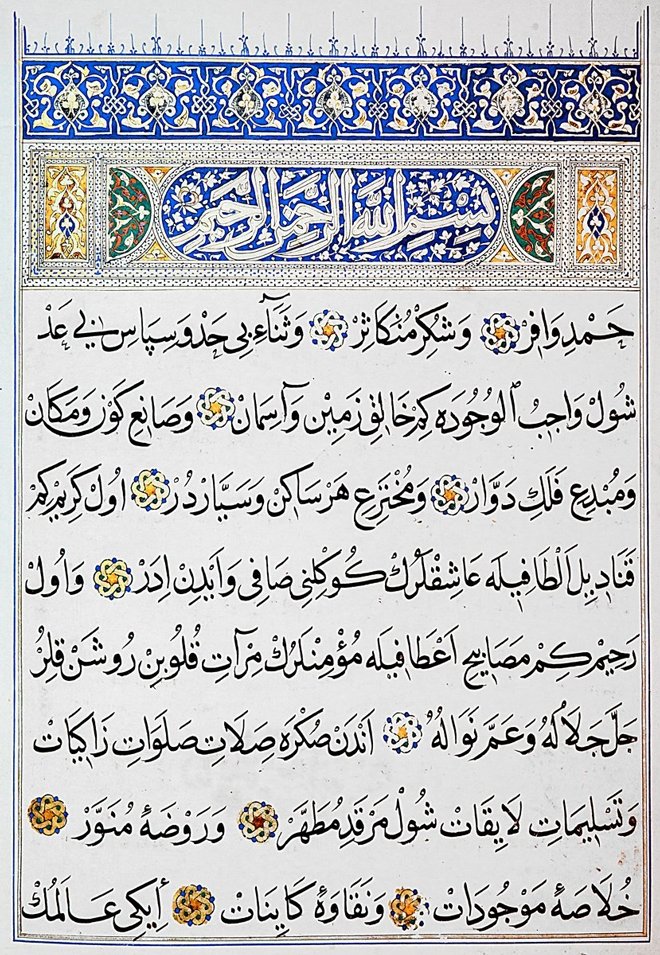 بسم الله الرحمن الرحيم
حَمْدِ وَافِرْ وَشُكْرِ مُتَكَاثِرْ وَثَنَاءِ بِى حَدْ وَ سِپَاسِ بِى عَدْ
شُولْ وَاجِبُ الْوُجُودَه كِمْ خَالِقِ زَمِيْن وَآسِمَانْ وَصَانِعِ كَوْن وَمَكَانْ
وَمُبْدِعِ فَلَكِ دَوَّارْ وَمُخْتَرِعِ هَرْ سَاكِنْ وَسَيَّارْدُرْ اُولْ كَرِيمْ كِمْ
قَنَادِيلِ اَلْطَافِيلَه عَاشِقْلَرُكْ كُوكْلِنِى صَافِى وَآيْدِنْ اِدَرْ وَاُولْ
رَحِيمْ كِمْ مَصَابِيحِ اَعْطَافِيلَه مُؤْمِنْلَرُكْ مِرْآتِ قُلُوبِنْ رُوشَنْ قِلُرْ
جَلَّ جَلَالُهُ وَعَمَّ نَوَالُهُ اَنْدَنْ صُكْرَه صِلَاتِ صَلَوَاتِ زَاكِيَاتْ
وَتَسْلِيمَاتِ لَايِقَاتْ شُولْ مَرْقَدِ مُطَهَّرْ وَرَوْضَهٔ مُنَوَّرْ
خُلَاصَهٔ مَوْجُودَاتْ وَنَقَاوَهٔ كَايِنَاتْ اِيكِى عَالَمُكْ